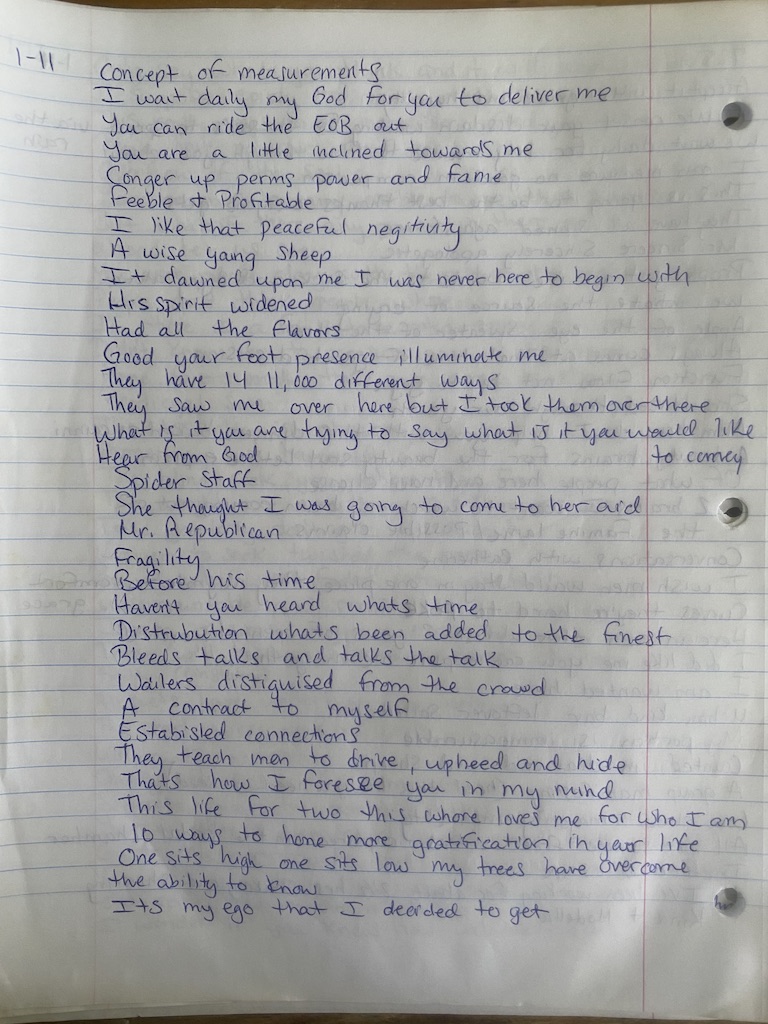 1-11
Concept of measurements
I wait daily my God for you to deliver me
You can ride the EOB out
You are a little inclined towards me
Conger up perms power and fame
Feeble & Profitable
I like that peaceful negitivity
A wise yaing sheep
It dawned upon me I was never here to begin with
His spirit widened
Had all the flavors
Good your foot presence illuminate me
They have 14 11,000 different ways
They saw me over here but I took them over there
What is it you are trying to say what is it you would like
to convey
Hear from God
Spider Staff
She thought I was going to come to her aid
Mr. Republican
Fragility
Before his time
Haven't you heard whats time
Distrubution whats been added to the finest
Bleeds talks and talks the talk
Wailers distiquised from the crowd
A contract to myself
Estabisled connections
They teach men to drive, upheed and hide
Thats how I foresee you in my mind
This life for two this whore loves me for who I am
10 ways to hone more gratification in your life
One sits high one sits low my trees have overcome
the ability to know
Its my ego that I decided to get